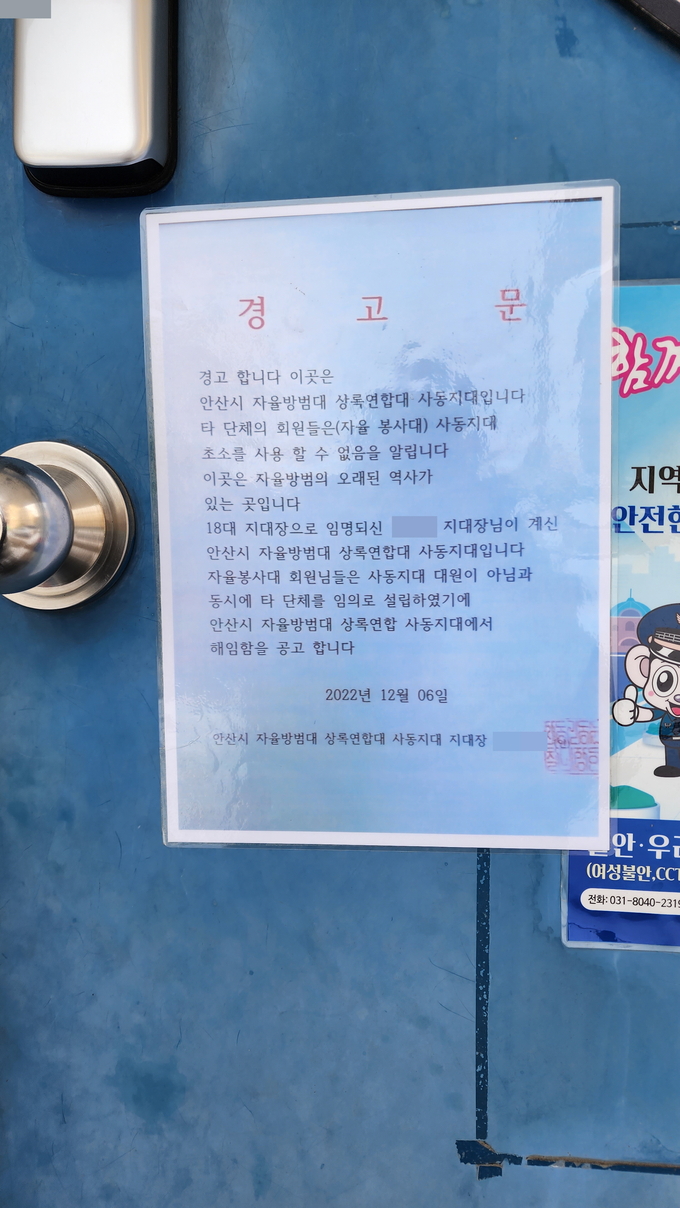 경 고 문
경고 합니다 이곳은
안산시 자율방범대 상록연합대 사동지대입니다
타 단체의 회원들은(자율 봉사대) 사동지대
초소를 사용 할 수 없음을 알립니다
이곳은 자율방범의 오래된 역사가
있는 곳입니다
18대 지대장으로 임명되신 지대장님이 계신
안산시 자율방범대 상록연합대 사동지대입니다
자율봉사대 회원님들은 사동지대 대원이 아님과
동시에 타 단체를 임의로 설립하였기에
안산시 자율방범대 상록연합 사동지대에서
해임함을 공고 합니다
2022년 12월 06일
안산시 자율방범대 상록연합대 사동지대 지대장
함께
지역
안전한
안·우리
(여성불안,CCT
전화: 031-8040-2319